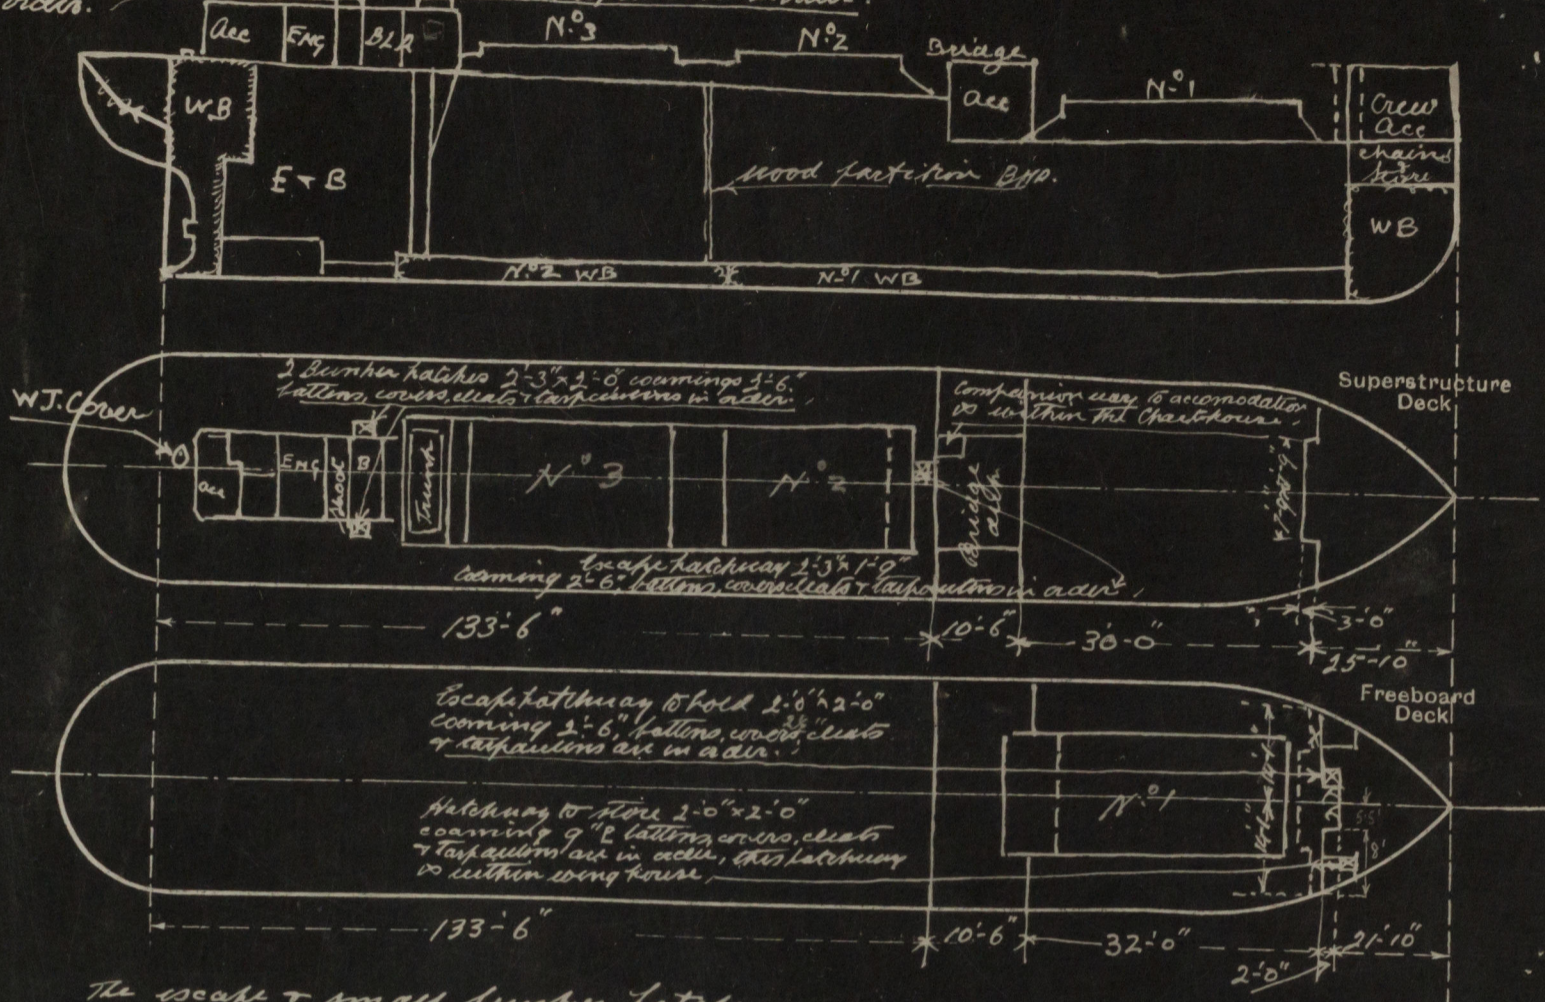 order.
Acc ENG BLR
No 3
No 2
Bridge
Acc
No 1
Crew
Acc
chain &
store
WB
WB
E & B
wood partition BHD.
No 2 WB
No 1 WB
W.T. Cover
2 Bunker hatches 2'-3" x 2'-0" coamings 2'-6"
battens, covers, cleats & tarpaulins in order.
Companion way to accomodation
is within the Chart house.
Superstructure
Deck
acc
ENG
B
Trunk
No 3
No 2
Bridge
Escape hatchway 2'-3" x 1'-9"
coaming 2'-6", battens, covers cleats & tarpaulins in order.
133'-6"
10'-6"
30'-0"
3'-0"
25'-10"
Freeboard
Deck
Escape hatchway to hold 2'-0" x 2'-0"
coaming 2'-6", battens, covers cleats
& tarpaulins are in order.
No 1
Hatchway to store 2'-0" x 2'-0"
coaming 9" battens, covers, cleats
& tarpaulins are in order, this hatchway
is within wing house,
5'5"
8'
133'-6"
10'-6"
32'-0"
2'-0"
21'-10"
The escape & small bunker